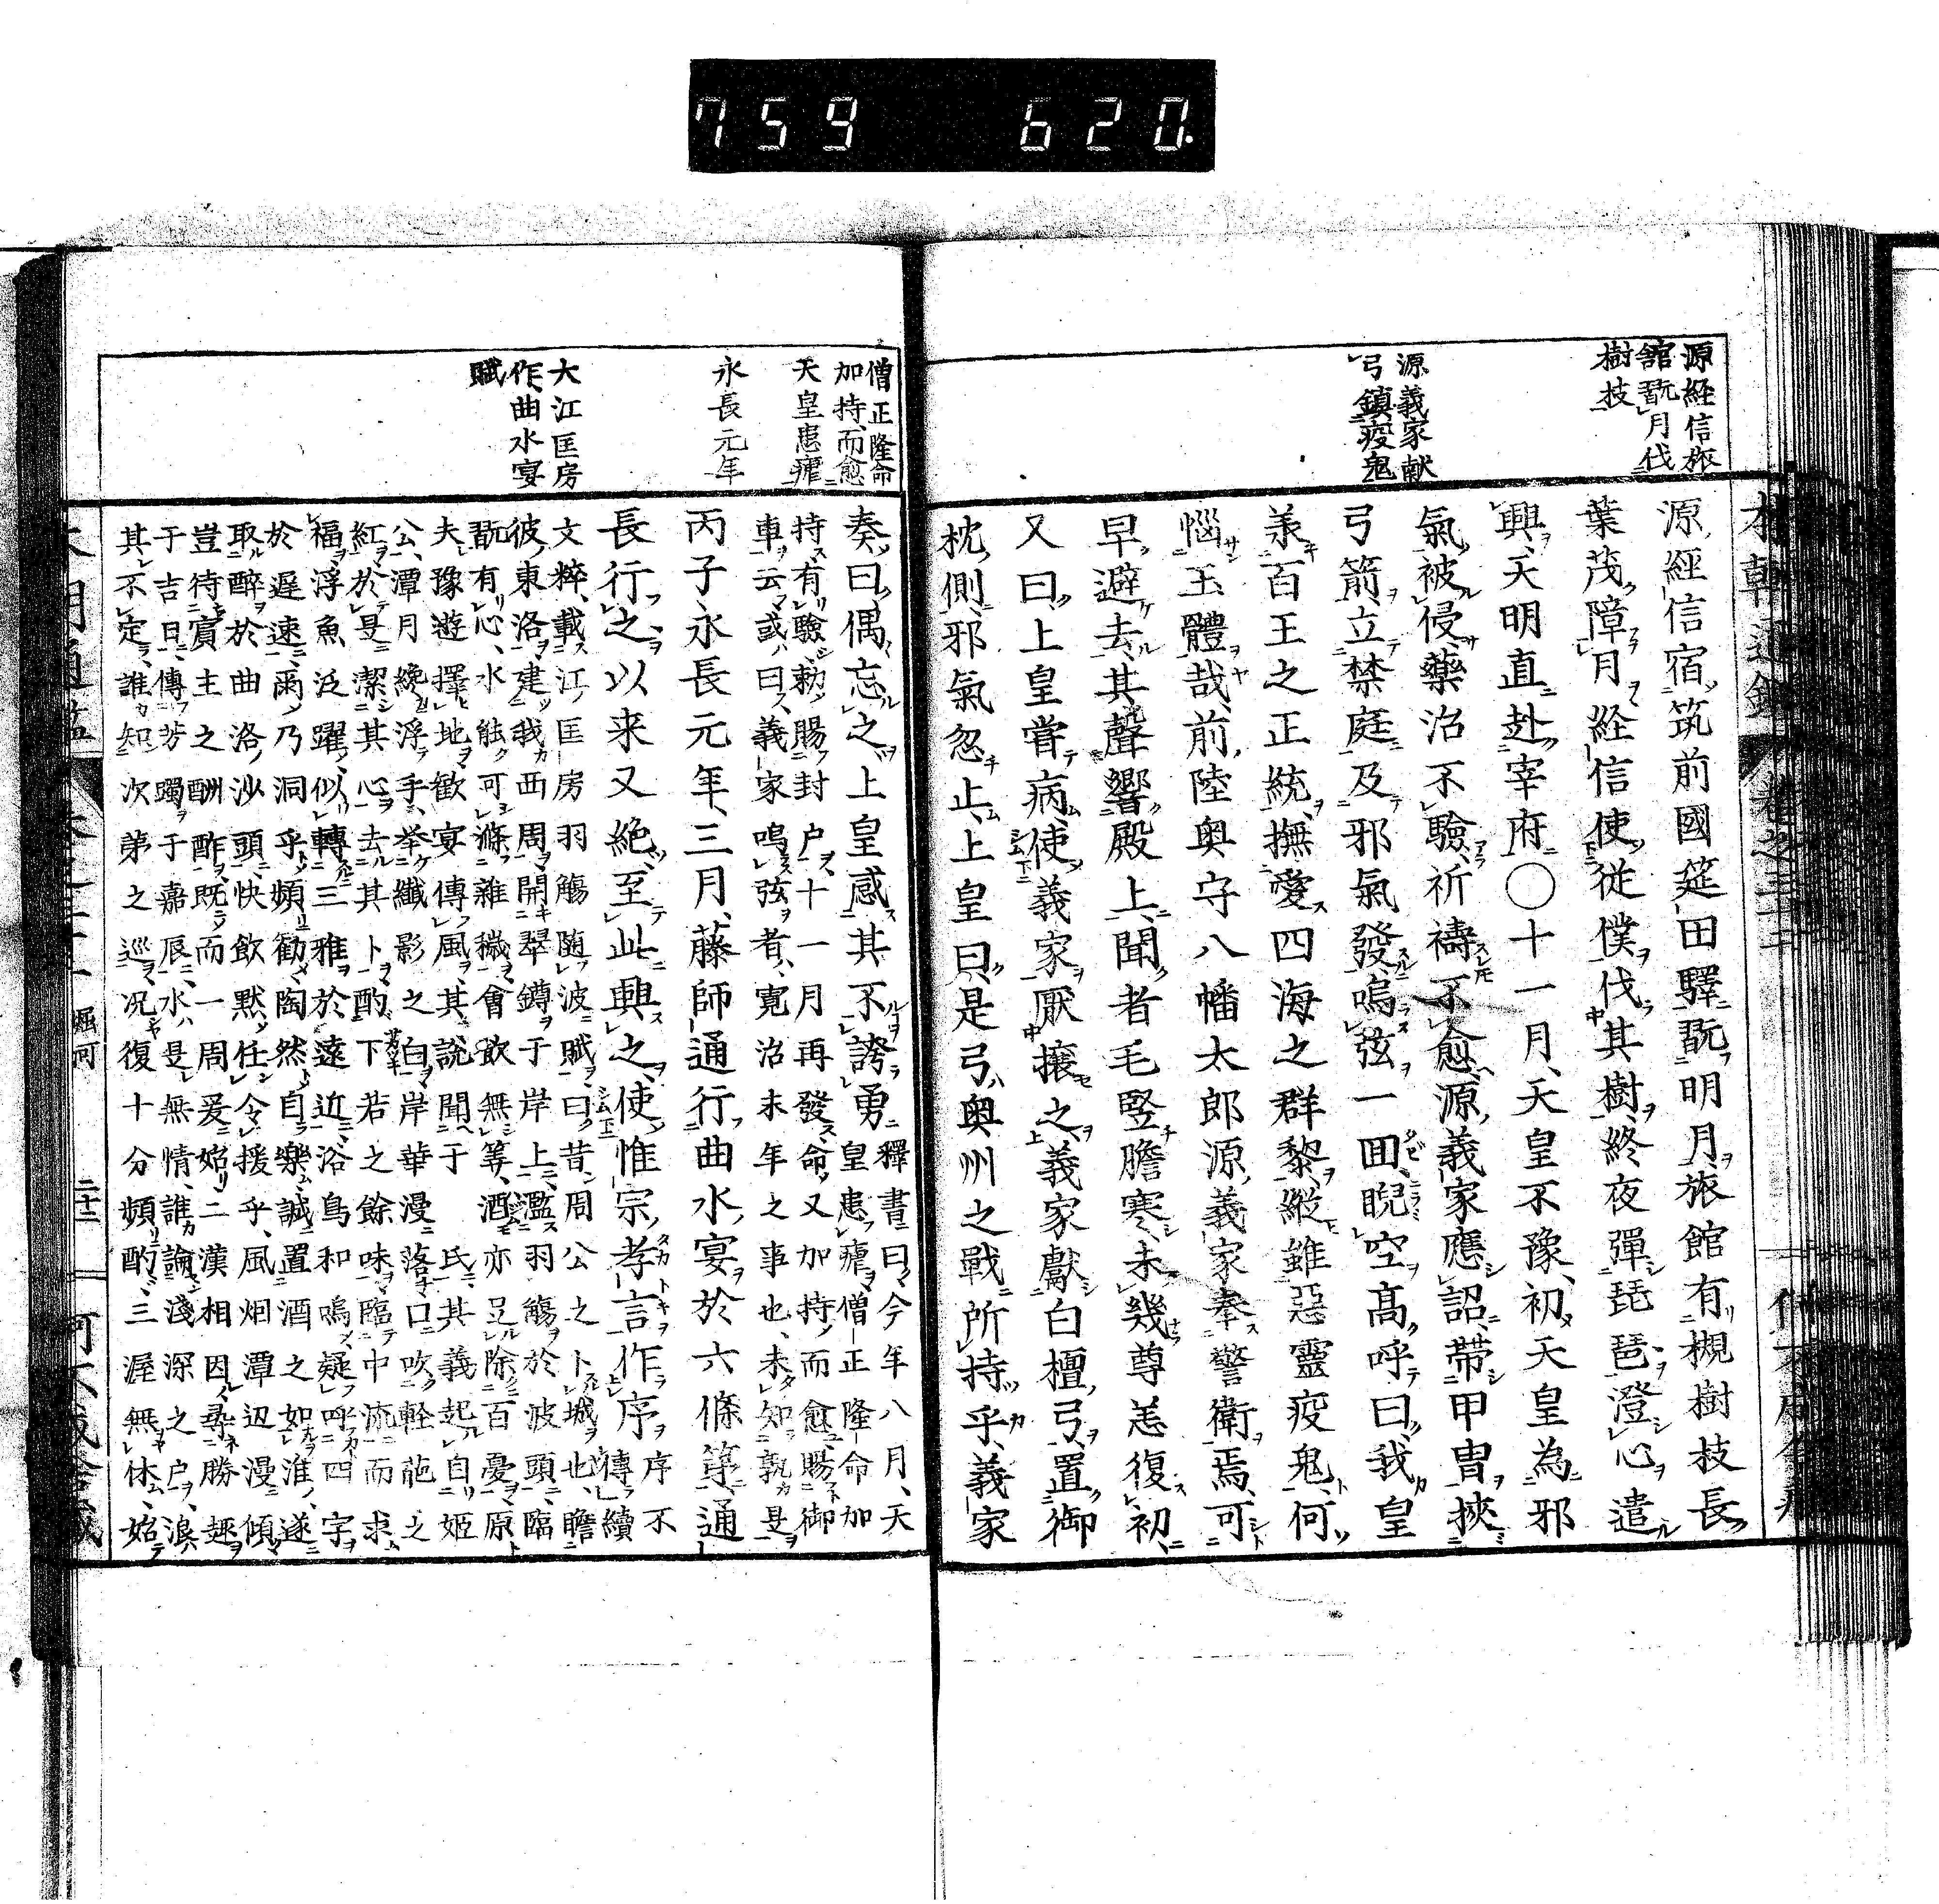 759 620.
源経信旅
館翫月伐
樹技
源義家献
弓鎮疫鬼
源經信宿筑前國筵田驛翫明月旅館有槻樹技長
葉茂障月経信使從僕伐其樹終夜彈琵琶澄心遣
興天明直赴宰府〇十一月天皇不豫初天皇為邪
氣被侵藥治不驗祈禱不愈源義家應詔帯甲冑挾
弓箭立禁庭及邪氣發鳴弦一囬睨空髙呼曰我皇
承百王之正統撫愛四海之群黎縱雖惡靈疫鬼何
惱玉體哉前陸奥守八幡太郎源義家奉警衛焉可
早避去其聲響殿上聞者毛竪膽寒未幾尊恙復初
又曰上皇甞病使義家厭攘之義家獻白檀弓置御
枕側邪氣忽止上皇曰是弓奥州之戰所持乎義家
僧正隆命
加持而愈
天皇患瘧
永長元年
大江匡房
作曲水宴
賦
奏曰偶忘之上皇感其不誇勇
釋書曰今年八月天
皇患瘧僧正隆命加
持有驗勅賜封户十一月再發命又加持而愈賜御
車云或曰義家鳴弦者寛治末年之事也未知孰是
丙子永長元年三月藤師通行曲水宴於六條第通
長行之以来又絶至此興之使惟宗孝言作序
序不
傳續
文粹載江匡房羽觴随波賦曰昔周公之卜城也瞻
彼東洛建我西周開翠鐏于岸上濫羽觴於波頭臨
翫有心水能可滌雜穢會飲無筭酒亦足除百憂原
夫豫遊擇地歓宴傳風其說聞于姫氏其義起自姫
公潭月纔浮手举纖影之白岸華漫落口吹軽葩之
紅於是潔其心去其卜酌下若之餘味臨中流而求
福浮魚泛躍似轉三雅於遠近浴鳥和鳴疑呼四字
於遲速爾乃洞乎頻勸陶然自樂誠置酒之如淮遂
取醉於曲洛沙頭快飲黙任令援乎風烟潭辺漫傾
豈待賓主之酬酢既而一周爰始二漢相因尋勝趣
于吉日傳芳躅于嘉辰水是無情誰論淺深之户浪
其不定誰知次第之巡况復十分頻酌三渥無休始